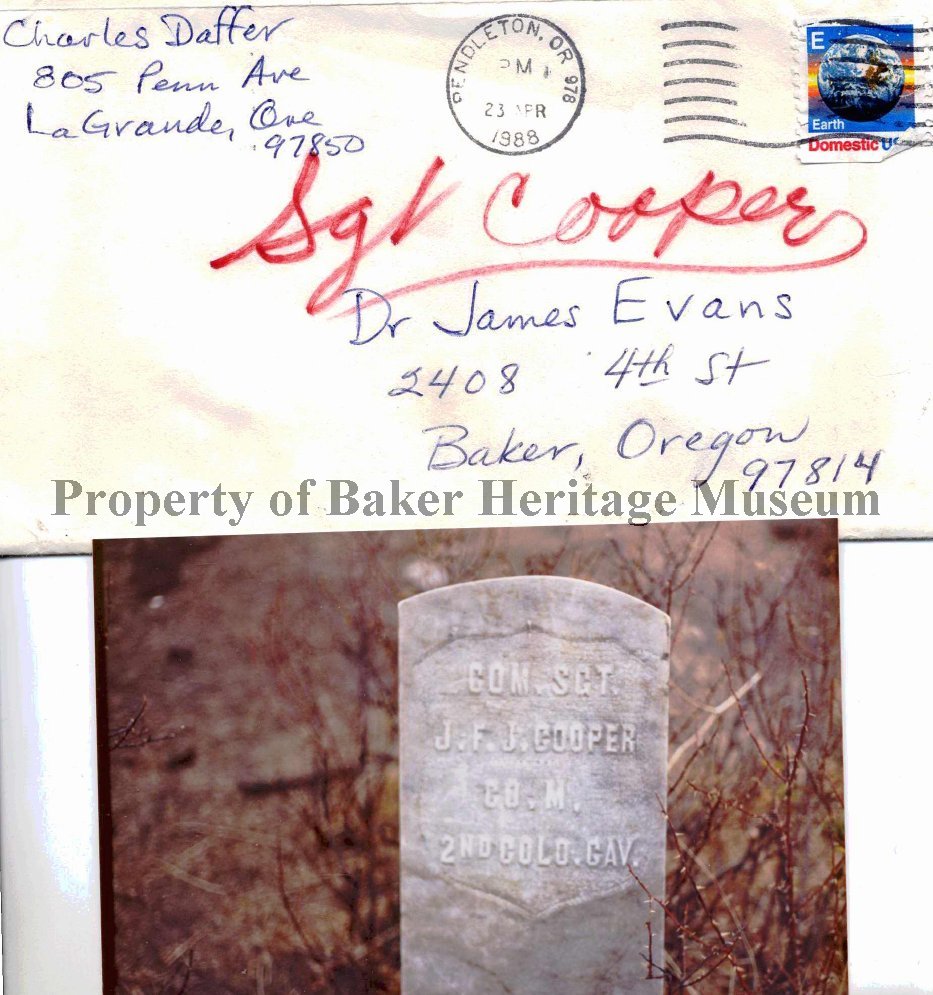 Charles Daffer
805 Penn Ave
LaGrande, Ore
97850
PENDLETON, OR 978
PM
23 APR
1988
E
Earth
Domestic U
Sgt Cooper
Dr James Evans
2408 4th St
Baker, Oregon
97814
Property of Baker Heritage Museum
COM. SGT.
J. F. J. COOPER
CO. M.
2ND COLO. CAV.